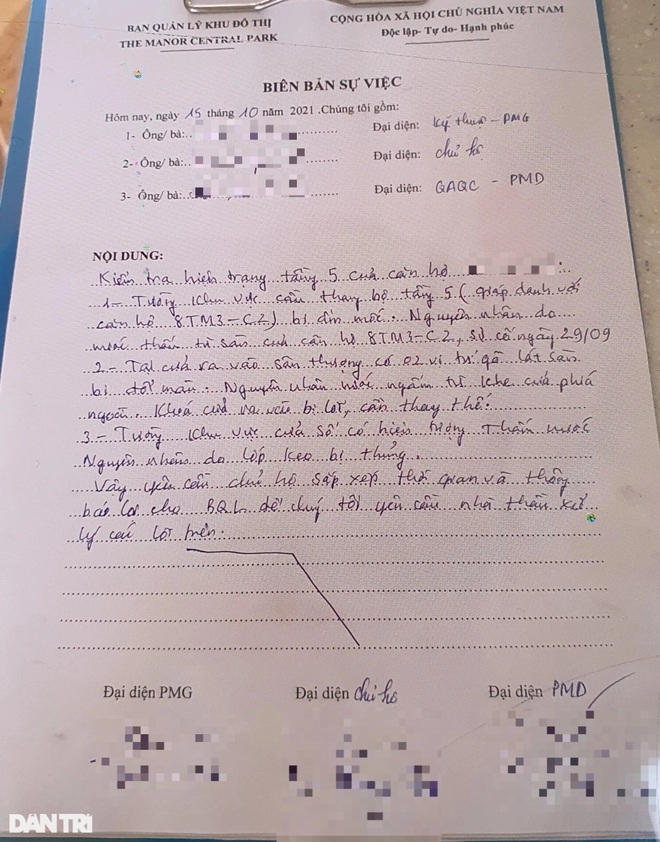 BAN QUẢN LÝ KHU ĐÔ THỊ
THE MANOR CENTRAL PARK
CỘNG HÒA XÃ HỘI CHỦ NGHĨA VIỆT NAM
Độc lập- Tự do- Hạnh phúc
BIÊN BẢN SỰ VIỆC
Hôm nay, ngày 15 tháng 10 năm 2021 .Chúng tôi gồm:
1- Ông/ bà: Đại diện: Kỹ thuật - PMG
2- Ông/ bà: Đại diện: chủ hộ
3- Ông/ bà: Đại diện: QAQC - PMD
NỘI DUNG:
Kiểm tra hiện trạng tầng 5 của căn hộ
1- Tường khu vực cầu thang bộ tầng 5 (giáp danh với
căn hộ 8TM3-C2) bị ẩm mốc. Nguyên nhân do
nước thấm từ sàn của căn hộ 8TM3-C2, sự cố ngày 29/09
2- Tại cửa ra vào sân thượng có 02 vị trí gỗ lát sàn
bị đổi màu. Nguyên nhân nước ngấm từ khe cửa phía
ngoài. Khoá cửa ra vào bị lỗi, cần thay thế.
3- Tường khu vực cửa sổ có hiện tượng thấm nước
Nguyên nhân do lớp keo bị thủng.
Vậy yêu cầu chủ hộ sắp xếp thời gian và thông
báo lại cho BQL để chúng tôi yêu cầu nhà thầu xử
lý các lỗi trên.
Đại diện PMG
Đại diện chủ hộ
Đại diện PMD
DÂN TRÍ